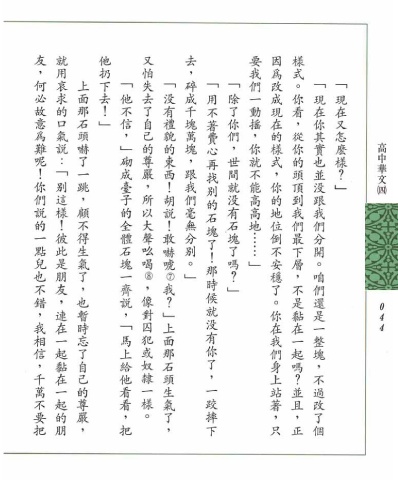 高中華文㈣
044
「現在又怎麼樣？」
「現在你其實也並沒跟我們分開。咱們還是一整塊，不過改了個
樣式。你看，從你的頭頂到我們最下層，不是黏在一起嗎？並且，正
因爲改成現在的樣式，你的地位倒不安穩了。你在我們身上站著，只
要我們一動搖，你就不能高高地……」
「除了你們，世間就沒有石塊了嗎？」
「用不著費心再找別的石塊了！那時候就沒有你了，一跤摔下
去，碎成千塊萬塊，跟我們毫無分別。」
「沒有禮貌的東西！胡說！敢嚇唬⑦我？」上面那石頭生氣了，
又怕失去了自己的尊嚴，所以大聲吆喝⑧，像對囚犯或奴隸一樣。
「他不信，」砌成臺子的全體石塊一齊說，「馬上給他看看，把
他扔下去！」
上面那石頭嚇了一跳，顧不得生氣了，也暫時忘了自己的尊嚴，
就用哀求的口氣說：「別這樣！彼此是朋友，連在一起黏在一起的朋
友，何必故意爲難呢！你們說的一點兒也不錯，我相信，千萬不要把